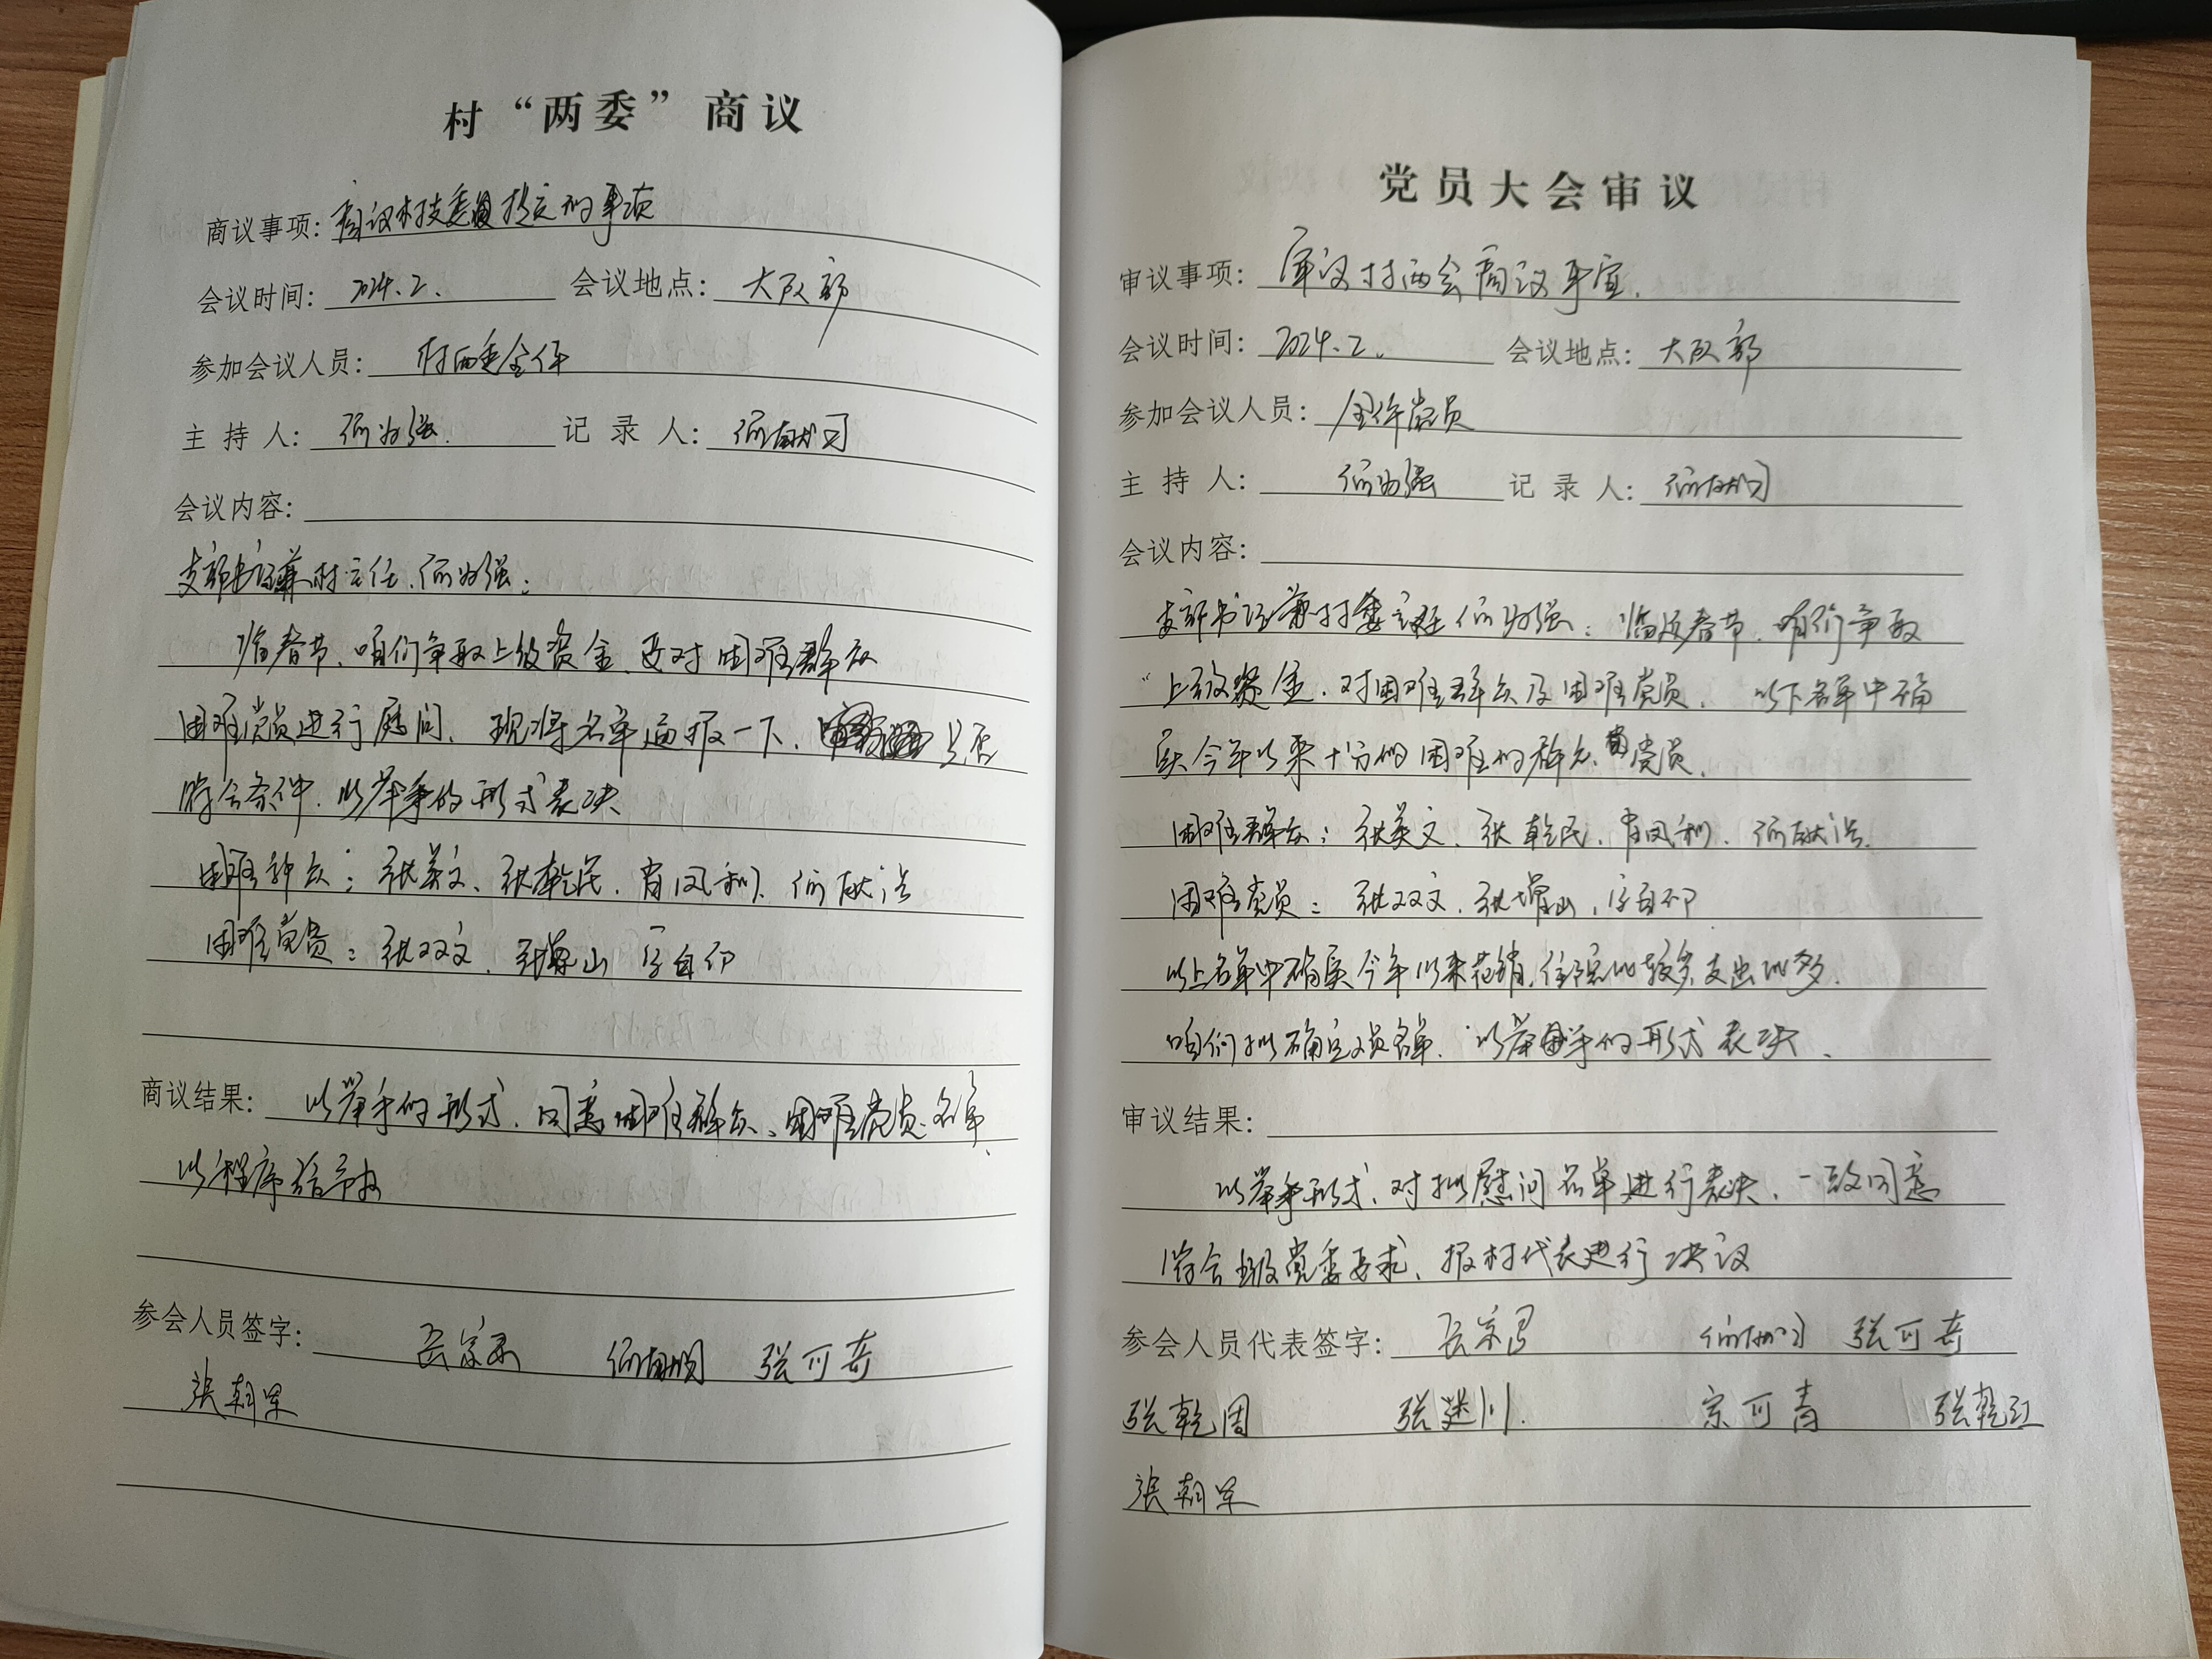 村“两委”商议
商议事项：商议村支委员提定的事项
会议时间：2024.2. 会议地点：大队部
参加会议人员：村两委全体
主持人：何为强. 记录人：何献
会议内容：
支部书记兼村主任.何为强：
临春节、咱们争取上级资金、要对困难群众
困难党员进行慰问、现将名单通报一下、是否
符合条件.以举手的形式表决
困难群众：张英文、张乾民.肖凤利.何献法
困难党员：张双文.张增山
商议结果：以举手的形式.同意困难群众、困难党员名单、
以程序给予
参会人员签字：何献 张可奇
张朝军
党员大会审议
审议事项：审议村两会商议事宜.
会议时间：2024.2. 会议地点：大队部
参加会议人员：全体党员
主持人：何为强 记录人：何献
会议内容：
支部书记兼村委主任何为强：临近春节.咱们争取
上级资金.对困难群众及困难党员. 以下名单中确
实今年以来十分的困难的群众、党员.
困难群众：张英文、张乾民.肖凤利.何献法.
困难党员：张双文.张增山.
以上名单中确实今年以来花销.住院比较多支出比多.
咱们拟确定人员名单.以举手的形式表决.
审议结果：
以举手形式、对拟慰问名单进行表决.一致同意
符合上级党委要求、报村代表进行决议
参会人员代表签字：何献 张可奇
张乾周 张 川. 宗可青 张乾红
张朝军